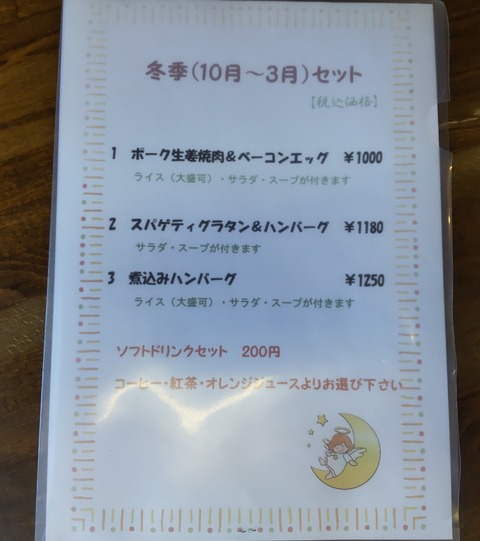 冬季(10月～3月)セット
【税込価格】
1 ポーク生姜焼肉&ベーコンエッグ ¥1000
ライス（大盛可）・サラダ・スープが付きます
2 スパゲティグラタン&ハンバーグ ¥1180
サラダ・スープが付きます
3 煮込みハンバーグ ¥1250
ライス（大盛可）・サラダ・スープが付きます
ソフトドリンクセット 200円
コーヒー・紅茶・オレンジジュースよりお選び下さい